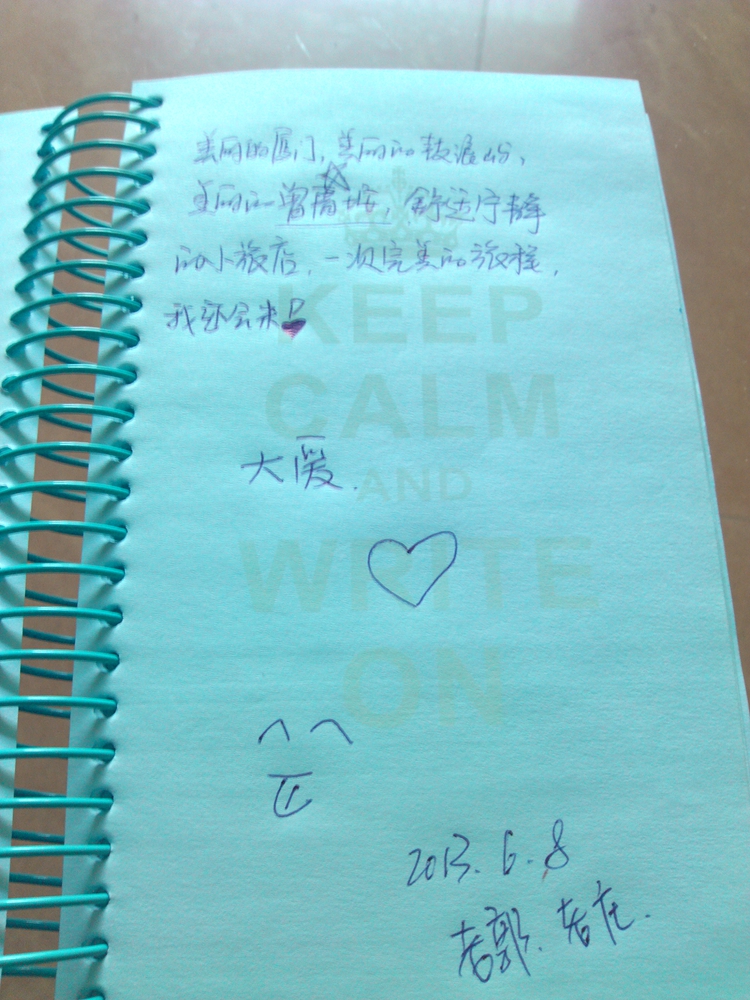 美丽的厦门，美丽的鼓浪屿，
美丽的曾厝垵，舒适宁静
的小旅店，一次完美的旅程，
我还会来
KEEP
CALM
大爱.
AND
WRITE
ON
2013. 6. 8
老郭. 老庄.